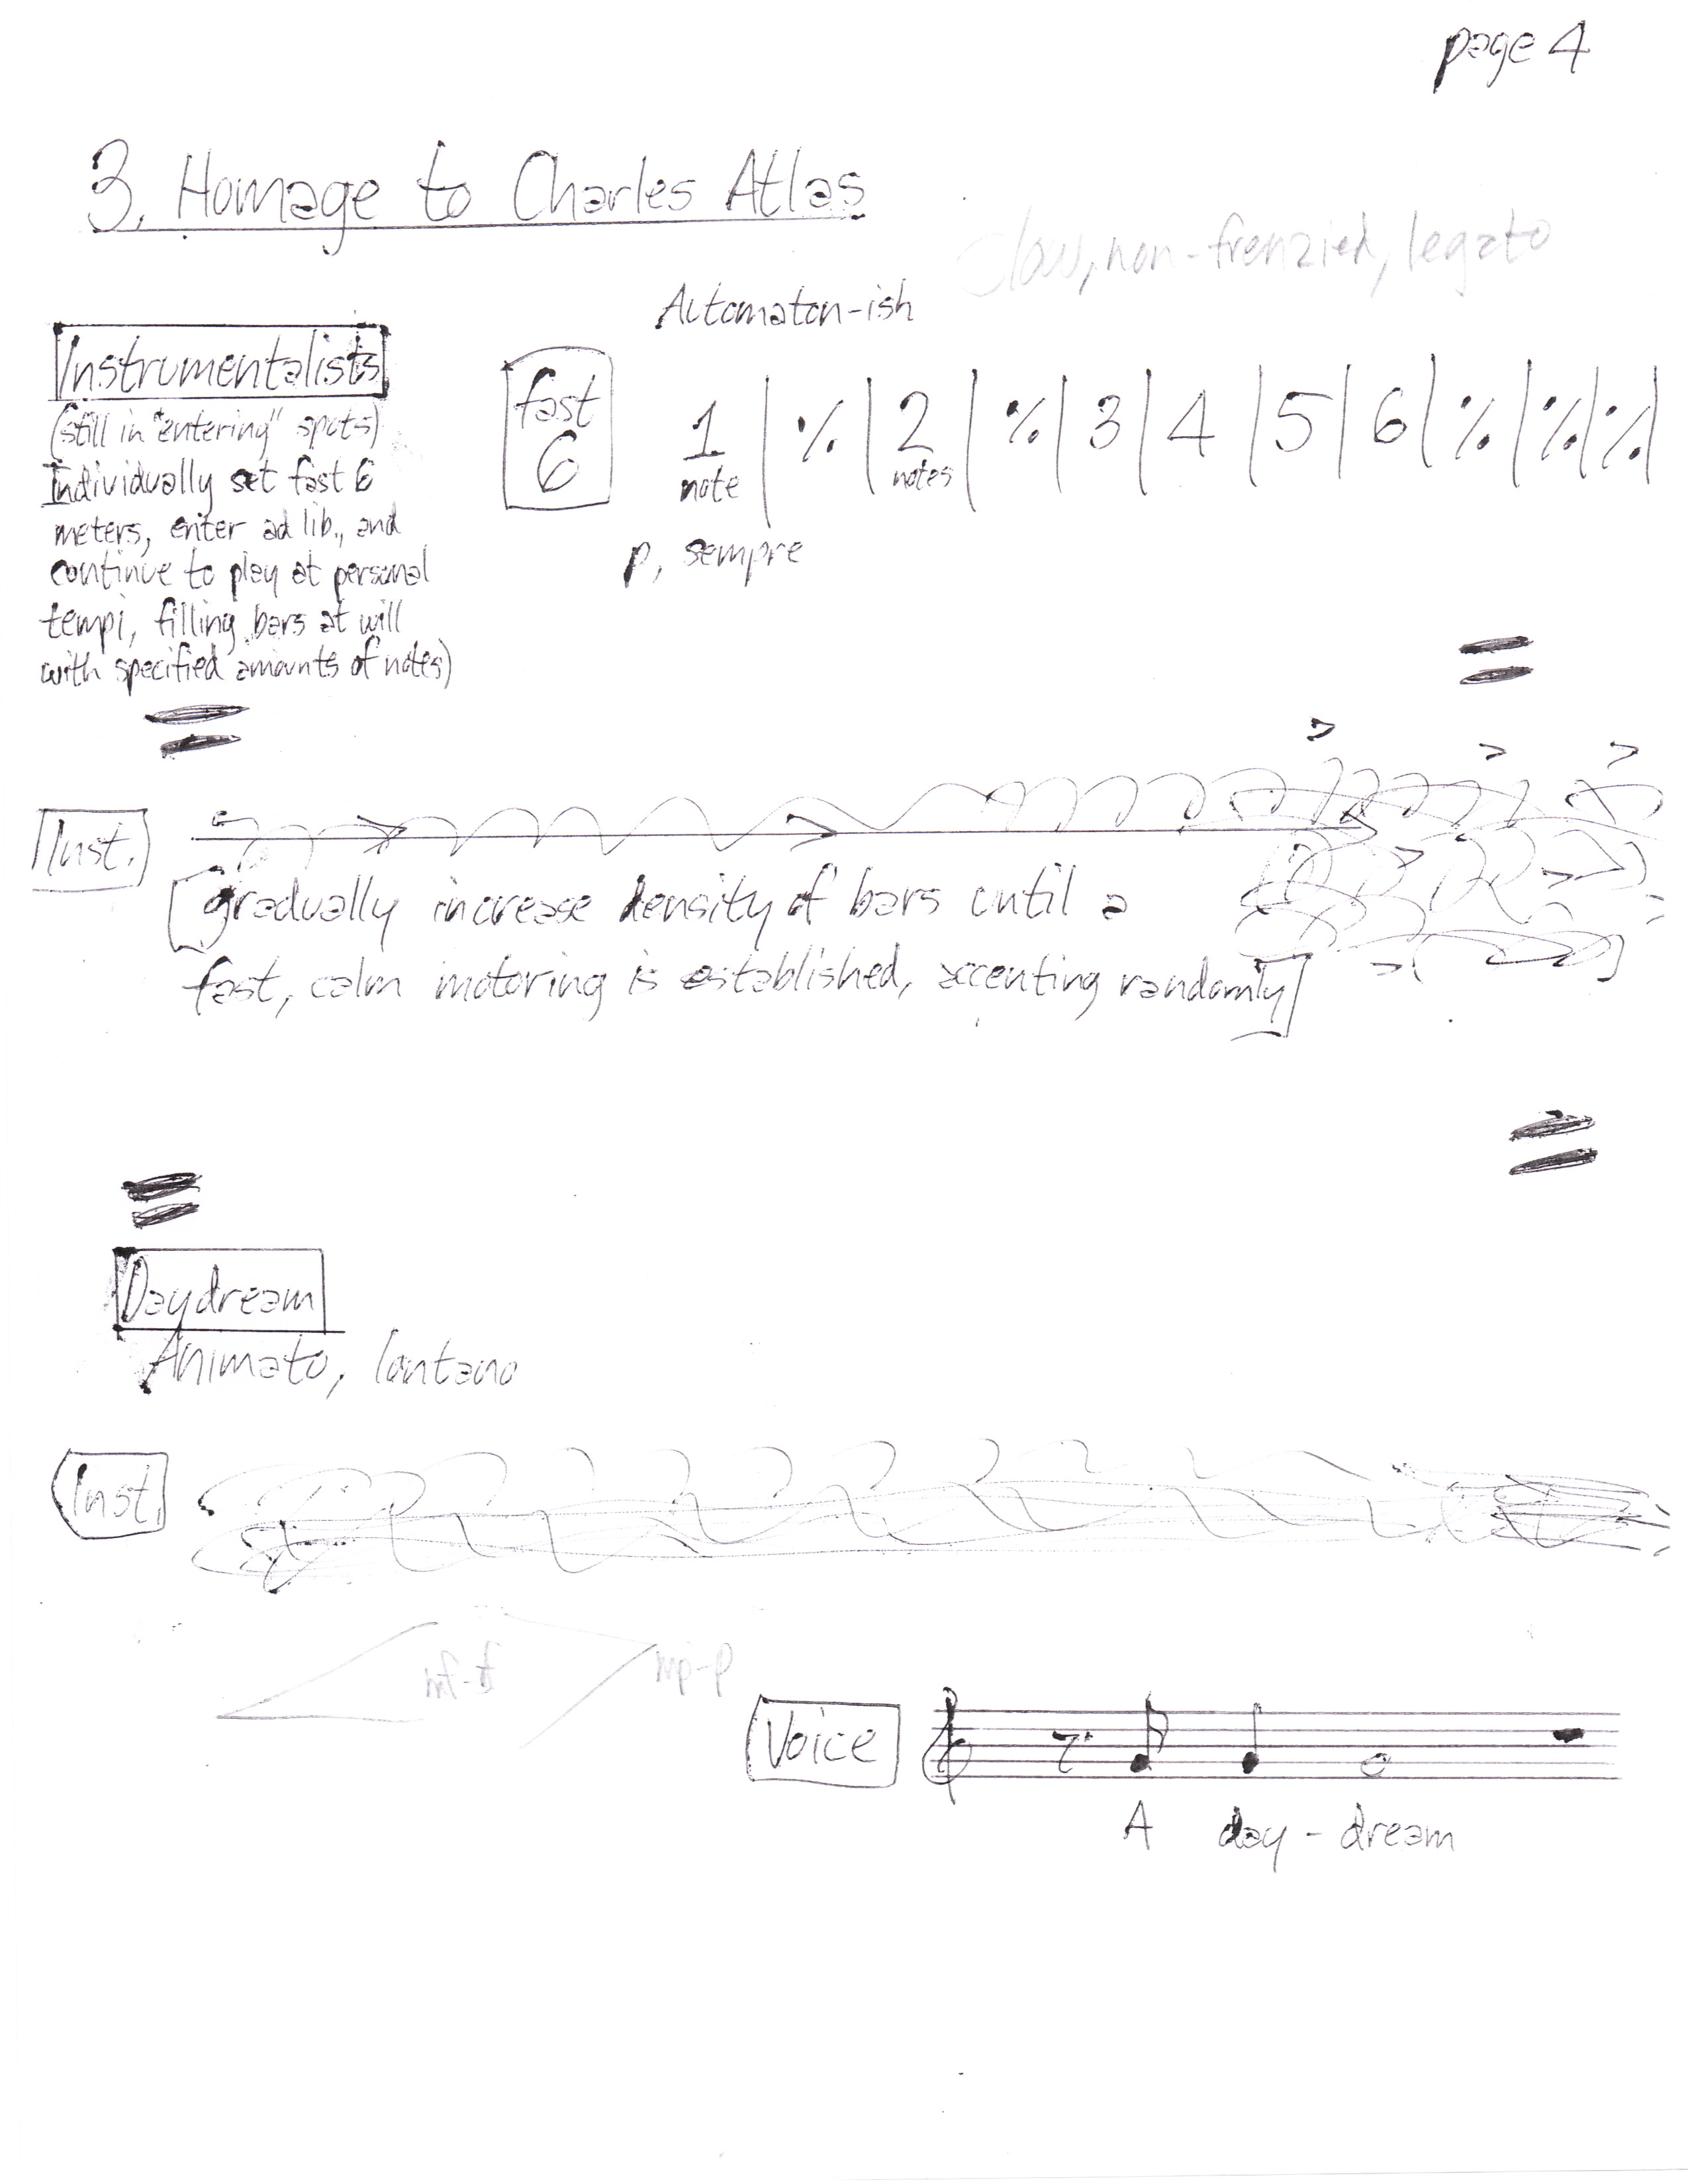 page 4
3. Homage to Charles Atlas
non-frenzied, legato
Automaton-ish
Instrumentalists
(still in "entering" spots)
Individually set fast 6
meters, enter ad lib., and
continue to play at personal
tempi, filling bars at will
with specified amounts of notes)
fast
6
1 | % | 2 | % | 3 | 4 | 5 | 6 | % | % | % |
note notes
p, sempre
Inst.
[gradually increase density of bars until a
fast, calm motoring is established, accenting randomly]
Daydream
Animato, lontano
Inst.
mf-f
mp-p
Voice
A day - dream